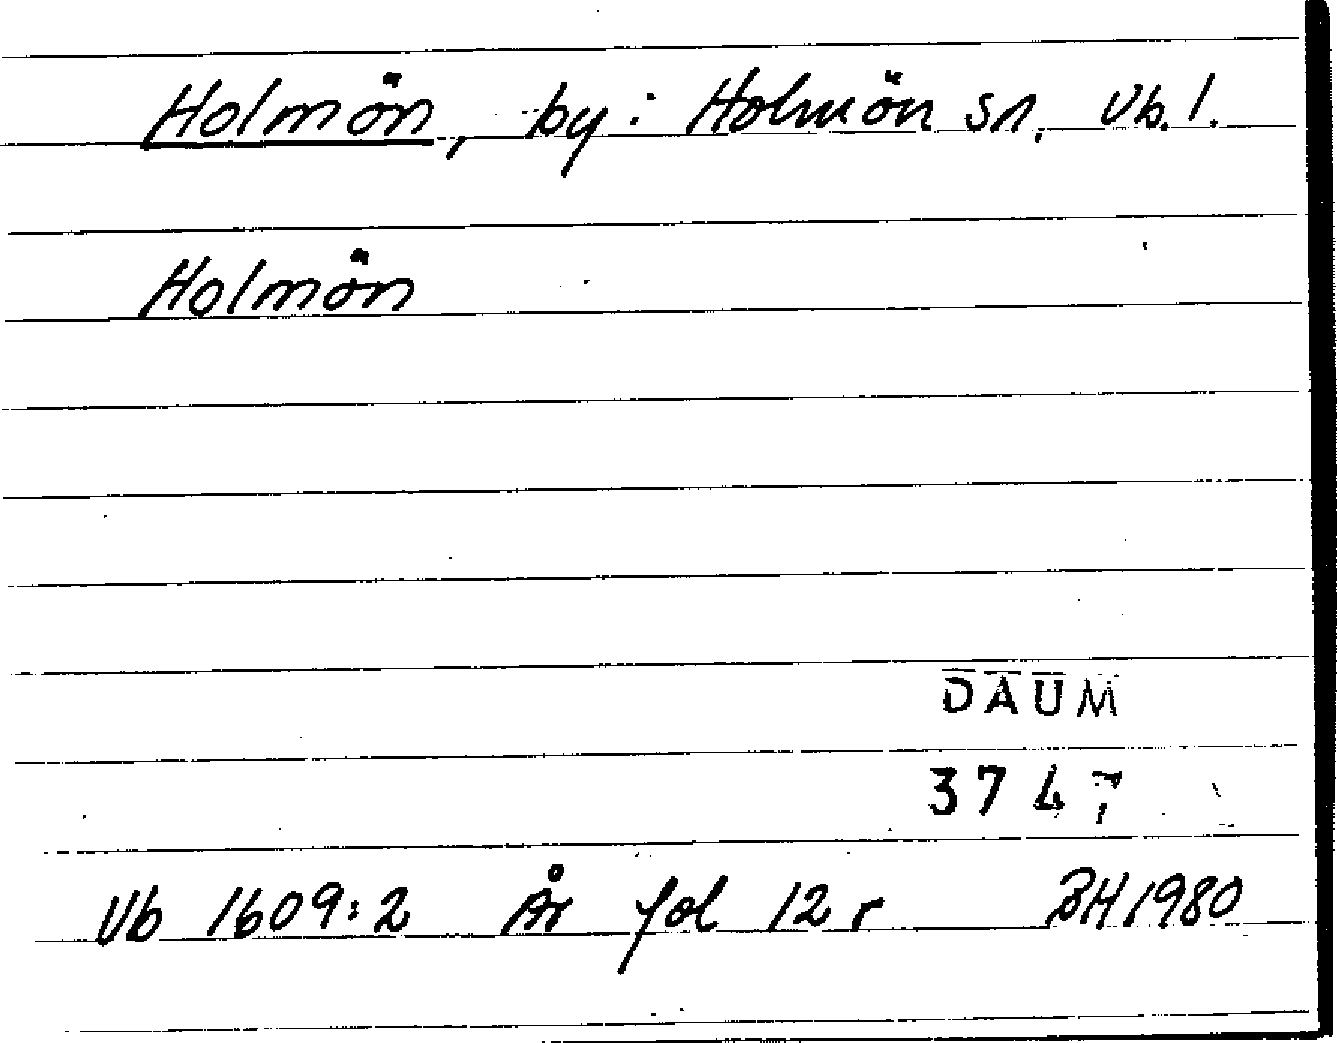 Holmön, by: Holmön sn. Vb. l.
Holmön
DAUM
3747
Vb 1609:2 År fol 12 r BH 1980